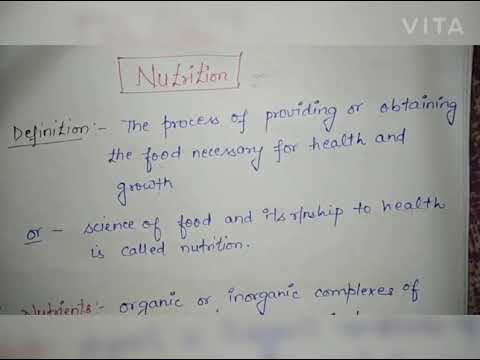 VITA
Nutrition
Definition :- The process of providing or obtaining
the food necessary for health and
growth
or - science of food and its r/nship to health
is called nutrition.
Nutrients :- organic or inorganic complexes of